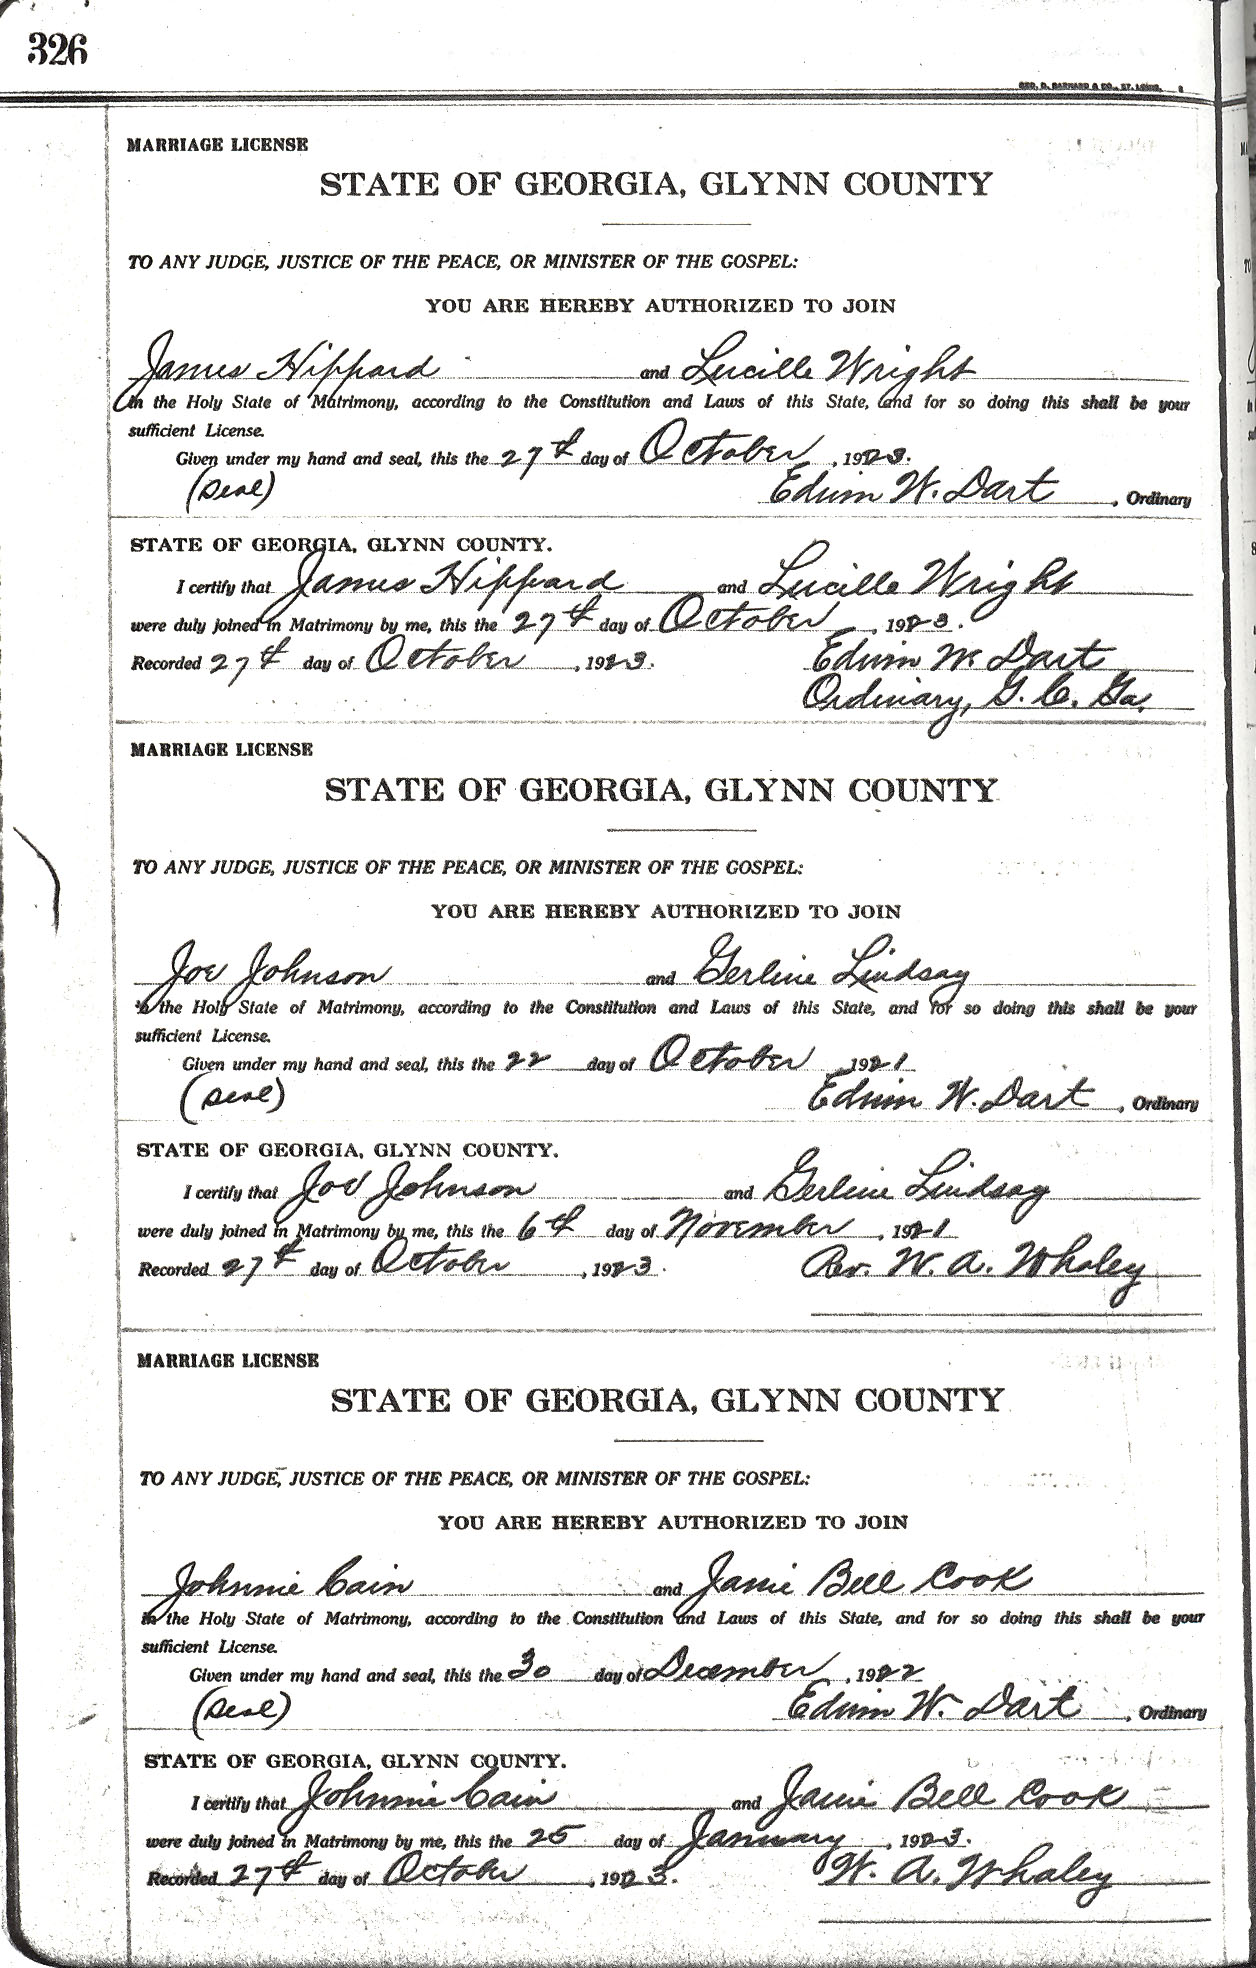 326
GEO. D. BARNARD & CO., ST. LOUIS.
MARRIAGE LICENSE
STATE OF GEORGIA, GLYNN COUNTY
TO ANY JUDGE, JUSTICE OF THE PEACE, OR MINISTER OF THE GOSPEL:
YOU ARE HEREBY AUTHORIZED TO JOIN
James Hippard and Lucille Wright
in the Holy State of Matrimony, according to the Constitution and Laws of this State, and for so doing this shall be your
sufficient License.
Given under my hand and seal, this the 27th day of October, 1923.
(Seal) Edwin W. Dart, Ordinary
STATE OF GEORGIA, GLYNN COUNTY.
I certify that James Hippard and Lucille Wright
were duly joined in Matrimony by me, this the 27th day of October, 1923.
Recorded 27th day of October, 1923. Edwin W. Dart
Ordinary, G. C. Ga.
MARRIAGE LICENSE
STATE OF GEORGIA, GLYNN COUNTY
TO ANY JUDGE, JUSTICE OF THE PEACE, OR MINISTER OF THE GOSPEL:
YOU ARE HEREBY AUTHORIZED TO JOIN
Joe Johnson and Gerline Lindsay
in the Holy State of Matrimony, according to the Constitution and Laws of this State, and for so doing this shall be your
sufficient License.
Given under my hand and seal, this the 22 day of October, 1921
(Seal) Edwin W. Dart, Ordinary
STATE OF GEORGIA, GLYNN COUNTY.
I certify that Joe Johnson and Gerline Lindsay
were duly joined in Matrimony by me, this the 6th day of November, 1921
Recorded 27th day of October, 1923. Rev. W. A. Whaley
MARRIAGE LICENSE
STATE OF GEORGIA, GLYNN COUNTY
TO ANY JUDGE, JUSTICE OF THE PEACE, OR MINISTER OF THE GOSPEL:
YOU ARE HEREBY AUTHORIZED TO JOIN
Johnnie Cain and Janie Bell Cook
in the Holy State of Matrimony, according to the Constitution and Laws of this State, and for so doing this shall be your
sufficient License.
Given under my hand and seal, this the 30 day of December, 1922
(Seal) Edwin W. Dart, Ordinary
STATE OF GEORGIA, GLYNN COUNTY.
I certify that Johnnie Cain and Janie Bell Cook
were duly joined in Matrimony by me, this the 25 day of January, 1923.
Recorded 27th day of October, 1923. W. A. Whaley